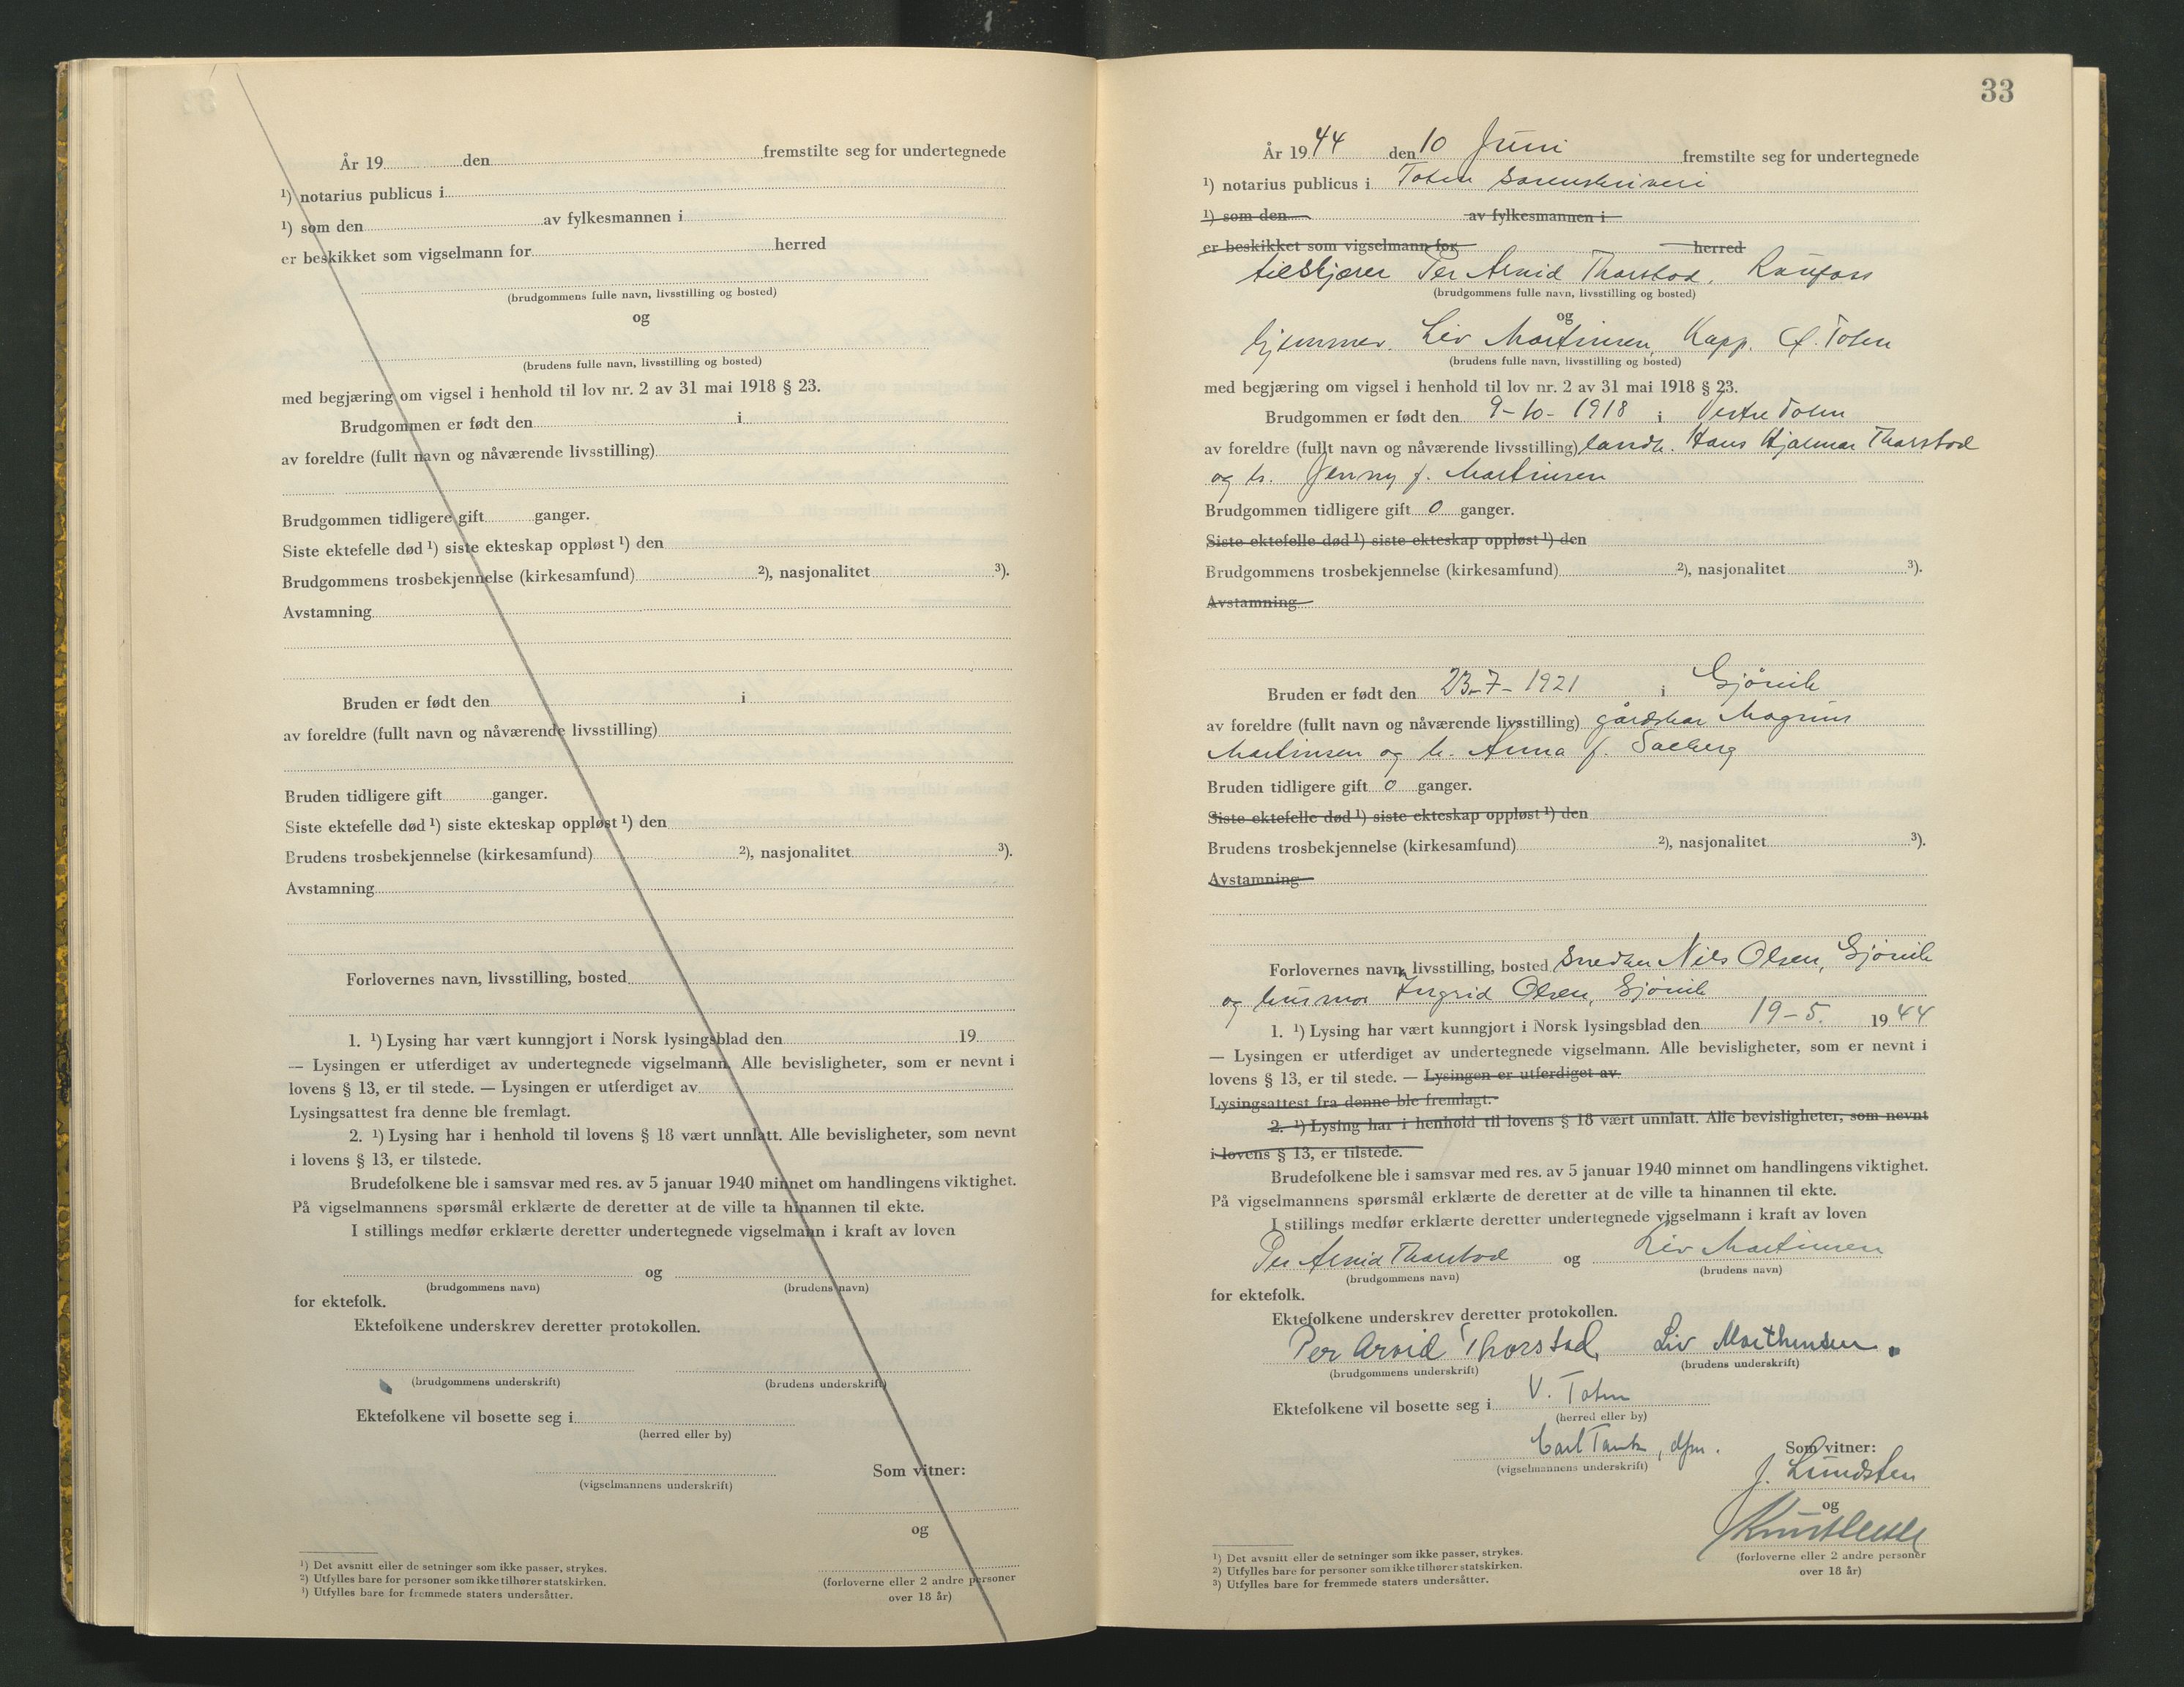 År 19 den fremstilte seg for undertegnede
¹) notarius publicus i
¹) som den av fylkesmannen i
er beskikket som vigselmann for herred
(brudgommens fulle navn, livsstilling og bosted)
og
(brudens fulle navn, livsstilling og bosted)
med begjæring om vigsel i henhold til lov nr. 2 av 31 mai 1918 § 23.
Brudgommen er født den i
av foreldre (fullt navn og nåværende livsstilling)
Brudgommen tidligere gift ganger.
Siste ektefelle død ¹) siste ekteskap oppløst ¹) den
Brudgommens trosbekjennelse (kirkesamfund) ²), nasjonalitet ³).
Avstamning
Bruden er født den i
av foreldre (fullt navn og nåværende livsstilling)
Bruden tidligere gift ganger.
Siste ektefelle død ¹) siste ekteskap oppløst ¹) den
Brudens trosbekjennelse (kirkesamfund) ²), nasjonalitet ³).
Avstamning
Forlovernes navn, livsstilling, bosted
1. ¹) Lysing har vært kunngjort i Norsk lysingsblad den 19
— Lysingen er utferdiget av undertegnede vigselmann. Alle bevisligheter, som er nevnt i
lovens § 13, er til stede. — Lysingen er utferdiget av
Lysingsattest fra denne ble fremlagt.
2. ¹) Lysing har i henhold til lovens § 18 vært unnlatt. Alle bevisligheter, som nevnt
i lovens § 13, er tilstede.
Brudefolkene ble i samsvar med res. av 5 januar 1940 minnet om handlingens viktighet.
På vigselmannens spørsmål erklærte de deretter at de ville ta hinannen til ekte.
I stillings medfør erklærte deretter undertegnede vigselmann i kraft av loven
og
(brudgommens navn) (brudens navn)
for ektefolk.
Ektefolkene underskrev deretter protokollen.
(brudgommens underskrift) (brudens underskrift)
Ektefolkene vil bosette seg i
(herred eller by)
Som vitner:
(vigselmannens underskrift)
og
(forloverne eller 2 andre personer
over 18 år)
¹) Det avsnitt eller de setninger som ikke passer, strykes.
²) Utfylles bare for personer som ikke tilhører statskirken.
³) Utfylles bare for fremmede staters undersåtter.
33
År 1944 den 10 Juni fremstilte seg for undertegnede
¹) notarius publicus i Toten sorenskriveri
¹) som den av fylkesmannen i
er beskikket som vigselmann for herred
tilskjærer Per Arvid Thorstad, Raufoss
(brudgommens fulle navn, livsstilling og bosted)
og
hjemmev. Liv Martinsen, Kapp. Ø. Toten
(brudens fulle navn, livsstilling og bosted)
med begjæring om vigsel i henhold til lov nr. 2 av 31 mai 1918 § 23.
Brudgommen er født den 9-10-1918 i Vestre Toten
av foreldre (fullt navn og nåværende livsstilling) landh. Hans Hjalmar Thorstad
og h. Jenny f. Martinsen
Brudgommen tidligere gift 0 ganger.
Siste ektefelle død ¹) siste ekteskap oppløst ¹) den
Brudgommens trosbekjennelse (kirkesamfund) ²), nasjonalitet ³).
Avstamning
Bruden er født den 23-7-1921 i Gjøvik
av foreldre (fullt navn og nåværende livsstilling) gårdskar Magnus
Martinsen og h. Anna f. Solberg
Bruden tidligere gift 0 ganger.
Siste ektefelle død ¹) siste ekteskap oppløst ¹) den
Brudens trosbekjennelse (kirkesamfund) ²), nasjonalitet ³).
Avstamning
Forlovernes navn, livsstilling, bosted snedker Nils Olsen, Gjøvik
og husmor Ingrid Olsen, Gjøvik
1. ¹) Lysing har vært kunngjort i Norsk lysingsblad den 19-5. 1944
— Lysingen er utferdiget av undertegnede vigselmann. Alle bevisligheter, som er nevnt i
lovens § 13, er til stede. — Lysingen er utferdiget av
Lysingsattest fra denne ble fremlagt.
2. ¹) Lysing har i henhold til lovens § 18 vært unnlatt. Alle bevisligheter, som nevnt
i lovens § 13, er tilstede.
Brudefolkene ble i samsvar med res. av 5 januar 1940 minnet om handlingens viktighet.
På vigselmannens spørsmål erklærte de deretter at de ville ta hinannen til ekte.
I stillings medfør erklærte deretter undertegnede vigselmann i kraft av loven
Per Arvid Thorstad og Liv Martinsen
(brudgommens navn) (brudens navn)
for ektefolk.
Ektefolkene underskrev deretter protokollen.
Per Arvid Thorstad, Liv Marthinsen.
(brudgommens underskrift) (brudens underskrift)
Ektefolkene vil bosette seg i V. Toten
(herred eller by)
Carl Tank, dfm. Som vitner:
(vigselmannens underskrift)
J. Lundsten
og
(forloverne eller 2 andre personer
over 18 år)
¹) Det avsnitt eller de setninger som ikke passer, strykes.
²) Utfylles bare for personer som ikke tilhører statskirken.
³) Utfylles bare for fremmede staters undersåtter.